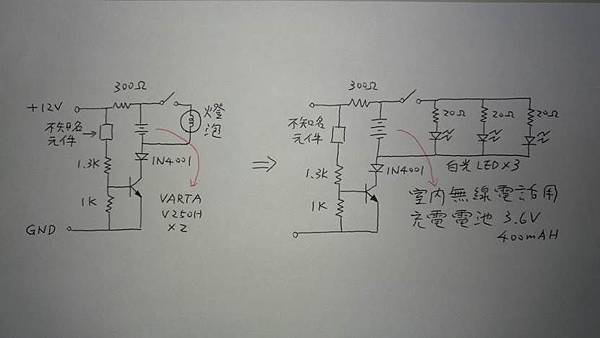 300Ω
+12V
燈泡
不知名
元件
1N4001
1.3K
1K
VARTA
V250H
×2
GND
⇒
300Ω
20Ω
20Ω
20Ω
不知名
元件
1N4001
白光LED×3
1.3K
1K
室內無線電話用
充電電池 3.6V
400mAH